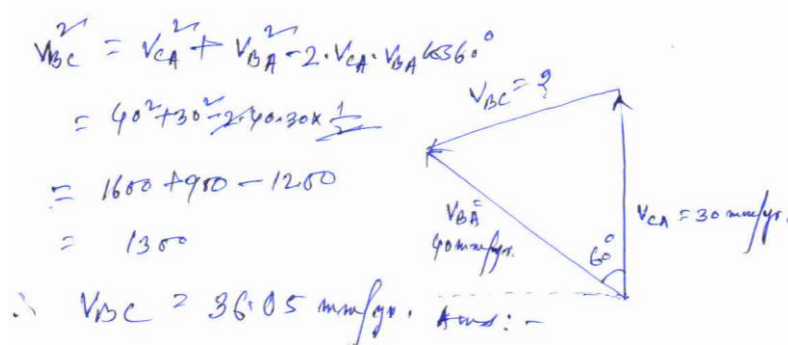 V_BC² = V_CA² + V_BA² - 2·V_CA·V_BA cos60°
= 40² + 30² - 2·40·30 × 1/2
= 1600 + 900 - 1200
= 1300
∴ V_BC = 36.05 mm/yr. Ans: -
V_BC = ?
V_BA =
40 mm/yr.
60°
V_CA = 30 mm/yr.